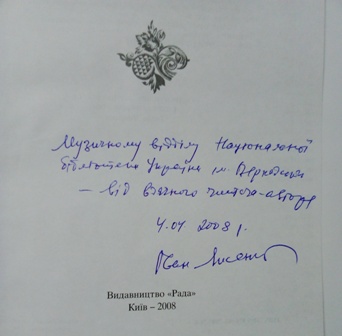 Музичному відділу Національної
бібліотеки України ім. Вернадського
– від вдячного читача-автора
4.04 2008 р.
Іван Лисенко
Видавництво «Рада»
Київ – 2008